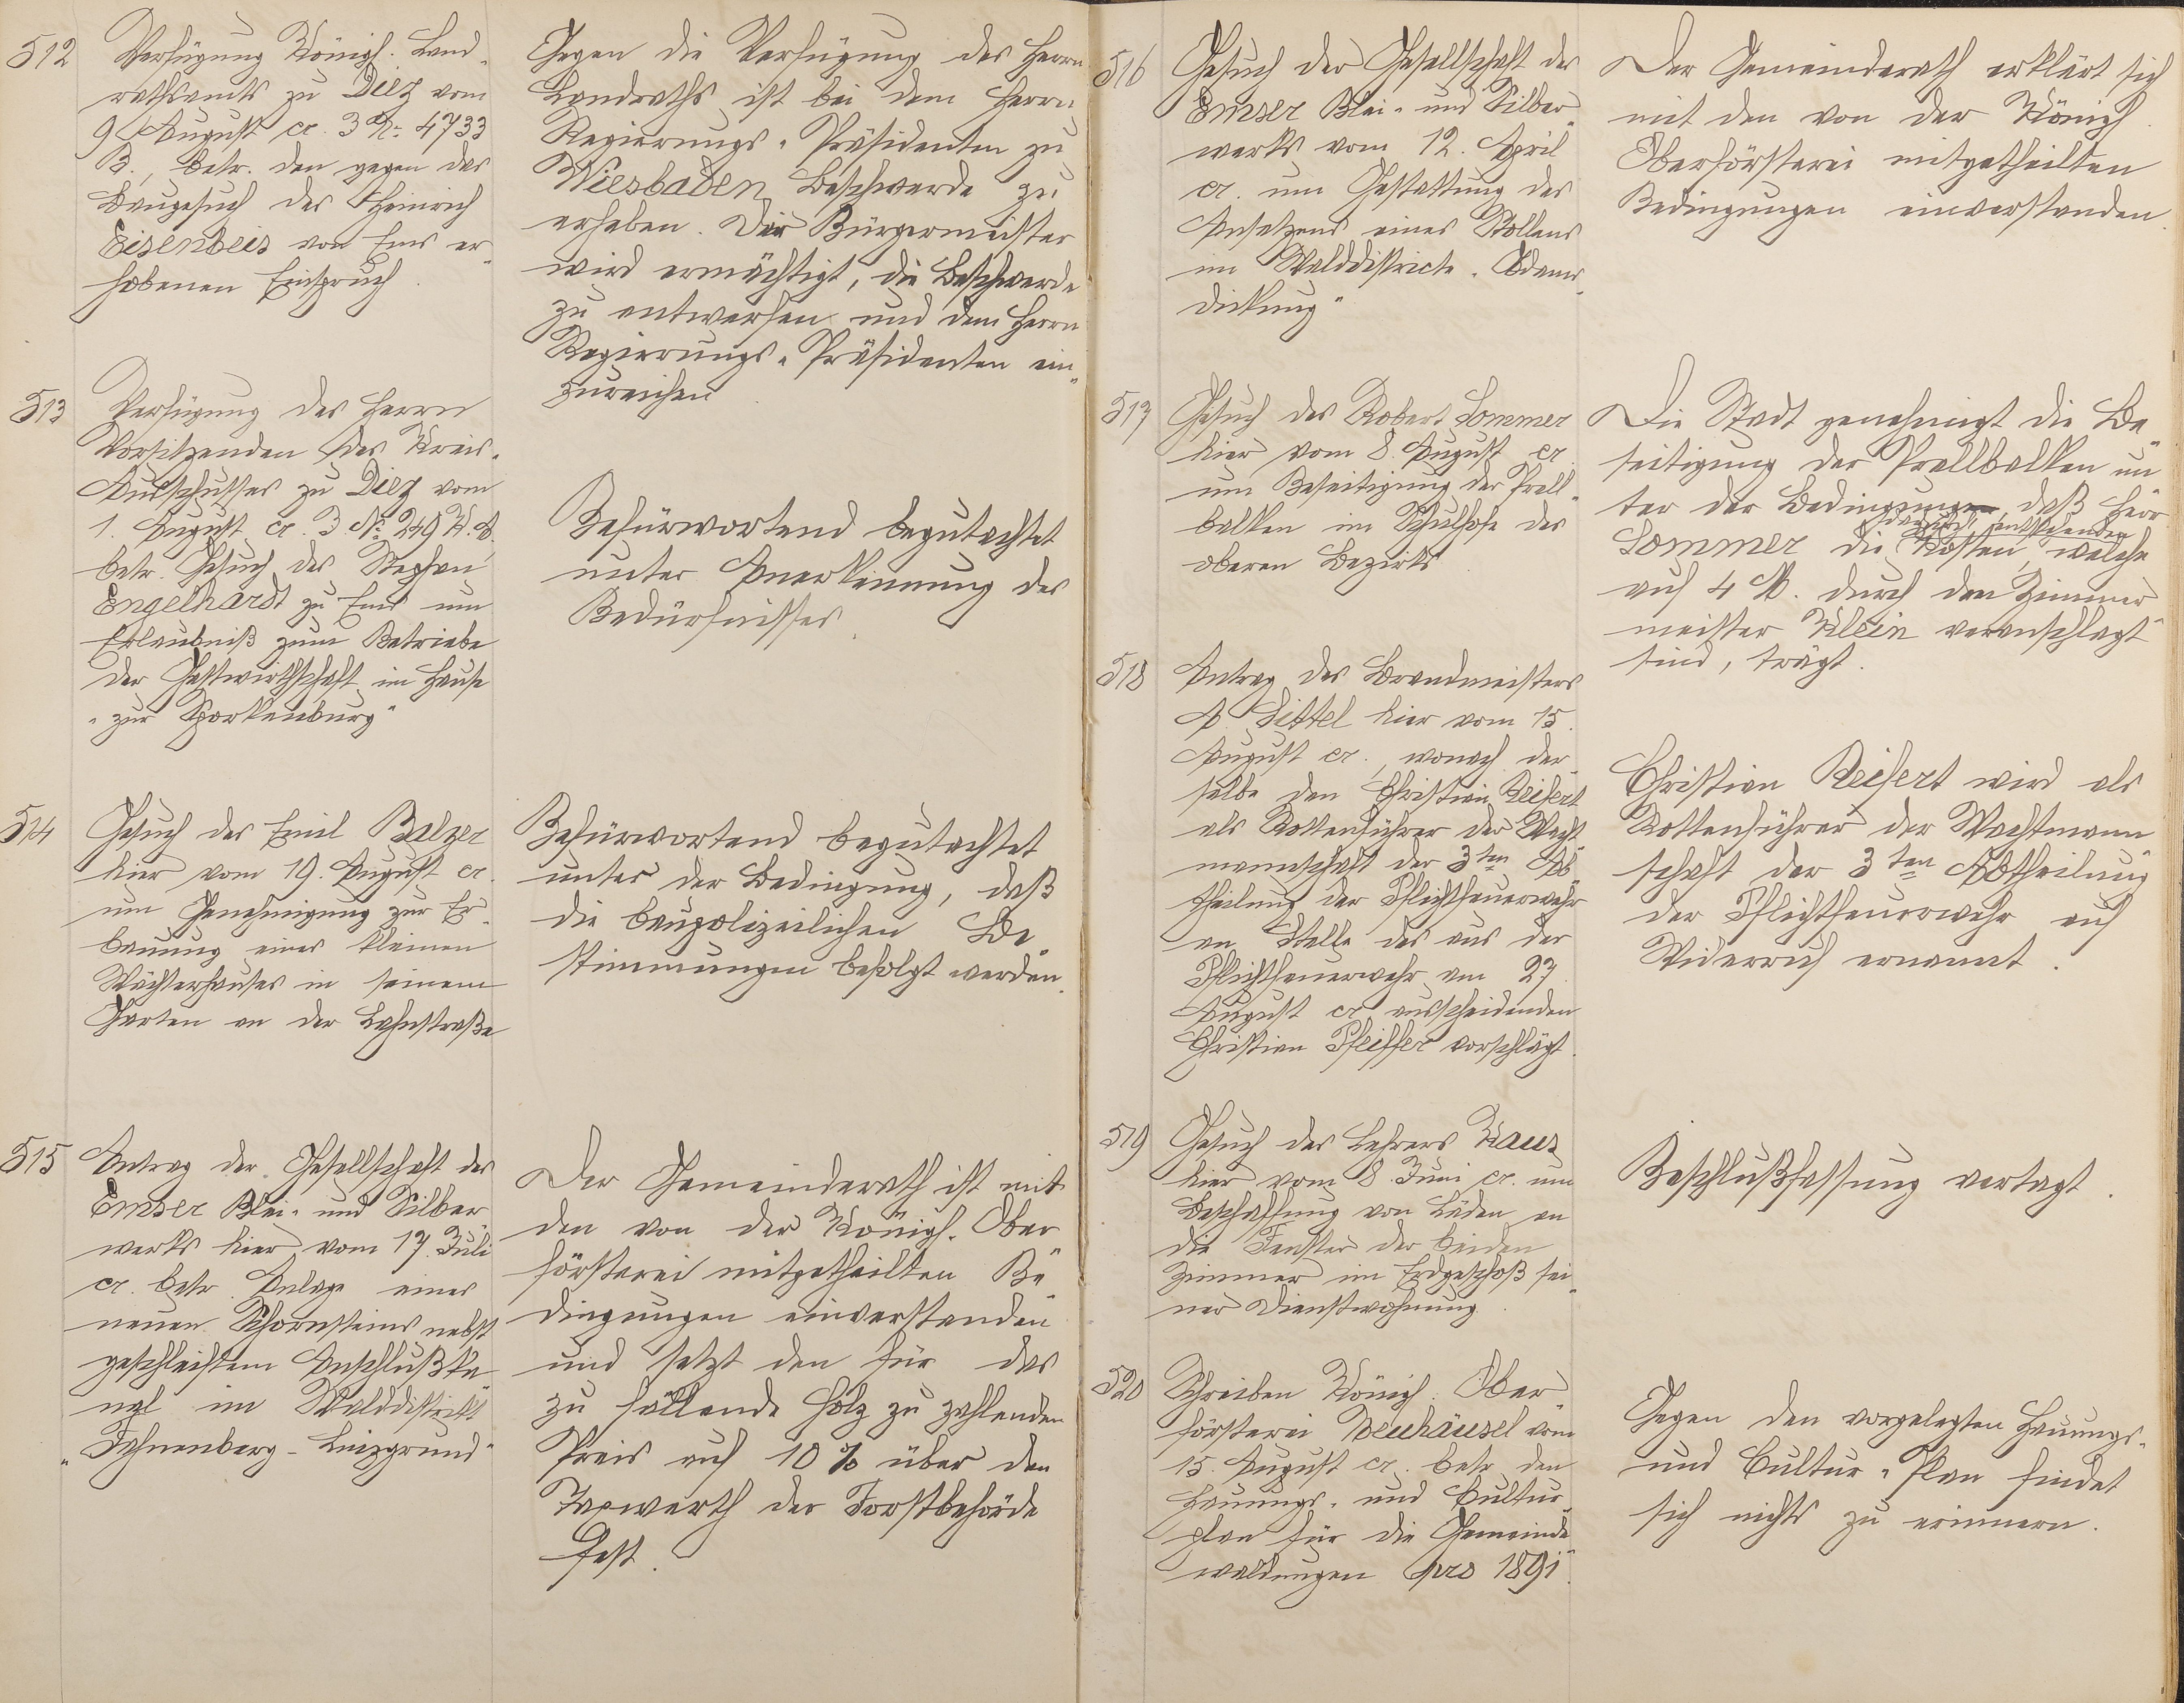 512
Verfügung Königl. Land-
rathsamts zu Diez vom
9. August cr. J. No. 4733
B., betr. den gegen das
Baugesuch des Heinrich
Eisenbeis von Ems er-
hobenen Einspruch.
Gegen die Verfügung des Herrn
Landraths ist bei dem Herrn
Regierungs-Präsidenten zu
Wiesbaden Beschwerde zu
erheben. Der Bürgermeister
wird ermächtigt, die Beschwerde
zu entwerfen und dem Herrn
Regierungs-Präsidenten ein-
zureichen.
513
Verfügung des Herrn
Vorsitzenden des Kreis-
Ausschusses zu Diez vom
1. August cr. J. No. 249 K. A.
betr. Gesuch des Stephan
Engelhardt zu Ems um
Erlaubniß zum Betriebe
der Gastwirthschaft im Hause
"zur Sporkenburg"
Befürwortend begutachtet
unter Anerkennung des
Bedürfnisses.
514
Gesuch des Emil Balzer
hier vom 19. August cr.
um Genehmigung zur Er-
bauung eines kleinen
Wächterhauses in seinem
Garten an der Lahnstraße
Befürwortend begutachtet
unter der Bedingung, daß
die baupolizeilichen Be-
stimmungen befolgt werden.
515
Antrag der Gesellschaft des
Emser Blei- und Silber-
werks hier vom 17. Juli
cr. betr. Anlage eines
neuen Schornsteins nebst
geschleiftem Anschlußka-
nal im Walddistrikt
"Fahnenberg-
Der Gemeinderath ist mit
den von der Königl. Ober-
försterei mitgetheilten Be-
dingungen einverstanden
und setzt den für das
zu fällende Holz zu zahlenden
Preis auf 10 % über den
Taxwerth der Forstbehörde
fest.
516
Gesuch der Gesellschaft des
Emser Blei- und Silber-
werks vom 12. April
cr. um Gestattung des
Ansetzens eines Stollens
im Walddistricte "Adams-
dickung"
Der Gemeinderath erklärt sich
mit den von der Königl.
Oberförsterei mitgetheilten
Bedingungen einverstanden.
517
Gesuch des Robert Sommer
hier vom 8. August cr.
um Beseitigung der Prell-
balken im Schulhofe des
oberen Bezirks.
Die Stadt genehmigt die Be-
seitigung der Prellbalken un-
ter der Bedingung, daß Herr
dadurch entstehenden
Sommer die Kosten, welche
auf 4 M. durch den Zimmer-
meister Klein veranschlagt
sind, trägt.
518
Antrag des Brandmeisters
A. Dittel hier vom 15.
August cr., wonach der-
selbe den Christian Reifert
als Rottenführer der Wacht-
mannschaft der 3ten Ab-
theilung der Pflichtfeuerwehr
an Stelle des aus der
Pflichtfeuerwehr am 27.
August cr. ausscheidenden
Christian Pfeiffer vorschlägt.
Christian Reifert wird als
Rottenführer der Wachtmann-
schaft der 3ten Abtheilung
der Pflichtfeuerwehr auf
Widerruf ernannt.
519
Gesuch des Lehrers Kaus
hier vom 8. Juni cr. um
Beschaffung von Läden an
die Fenster der beiden
Zimmer im Erdgeschoß sei-
ner Dienstwohnung.
Beschlußfassung vertagt.
520
Schreiben Königl. Ober-
försterei Neuhäusel vom
15. August cr. betr. den
Hauungs- und Cultur-
plan für die Gemeinde-
waldungen pro 1891.
Gegen den vorgelegten Hauungs-
und Cultur-Plan findet
sich nichts zu erinnern.